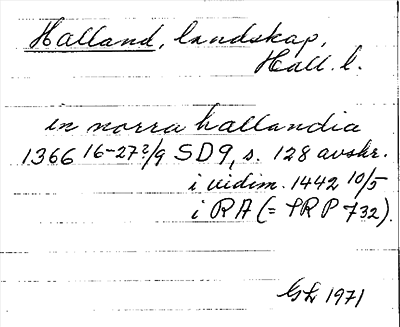 Halland, landskap,
Hall. l.
in norra hallandia
1366 16-27?/9 SD9, s. 128 avskr.
i vidim. 1442 10/5
i RA (= SRP 732).
GL 1971